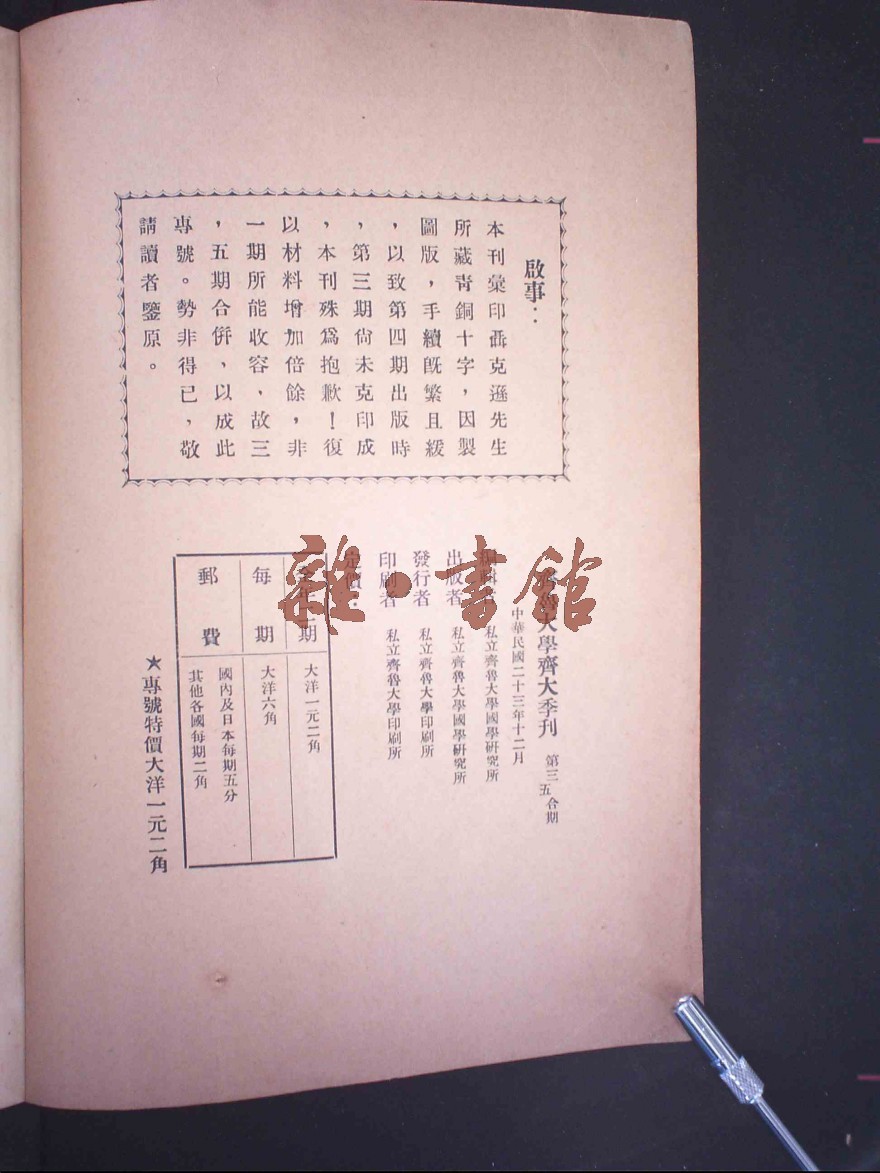 啟事：
本刊彙印聶克遜先生
所藏青銅十字，因製
圖版，手續旣繁且緩
，以致第四期出版時
，第三期尙未克印成
，本刊殊爲抱歉！復
以材料增加倍餘，非
一期所能收容、故三
，五期合併、以成此
專號。勢非得已，敬
請讀者鑒原。
魯大學齊大季刊 第三五合期
中華民國二十三年十二月
私立齊魯大學國學研究所
出版者 私立齊魯大學國學研究所
發行者 私立齊魯大學印刷所
印刷者 私立齊魯大學印刷所
定價：
全年二期 大洋一元二角
每期 大洋六角
郵費 國內及日本每期五分
其他各國每期二角
★專號特價大洋一元二角
雜·書館